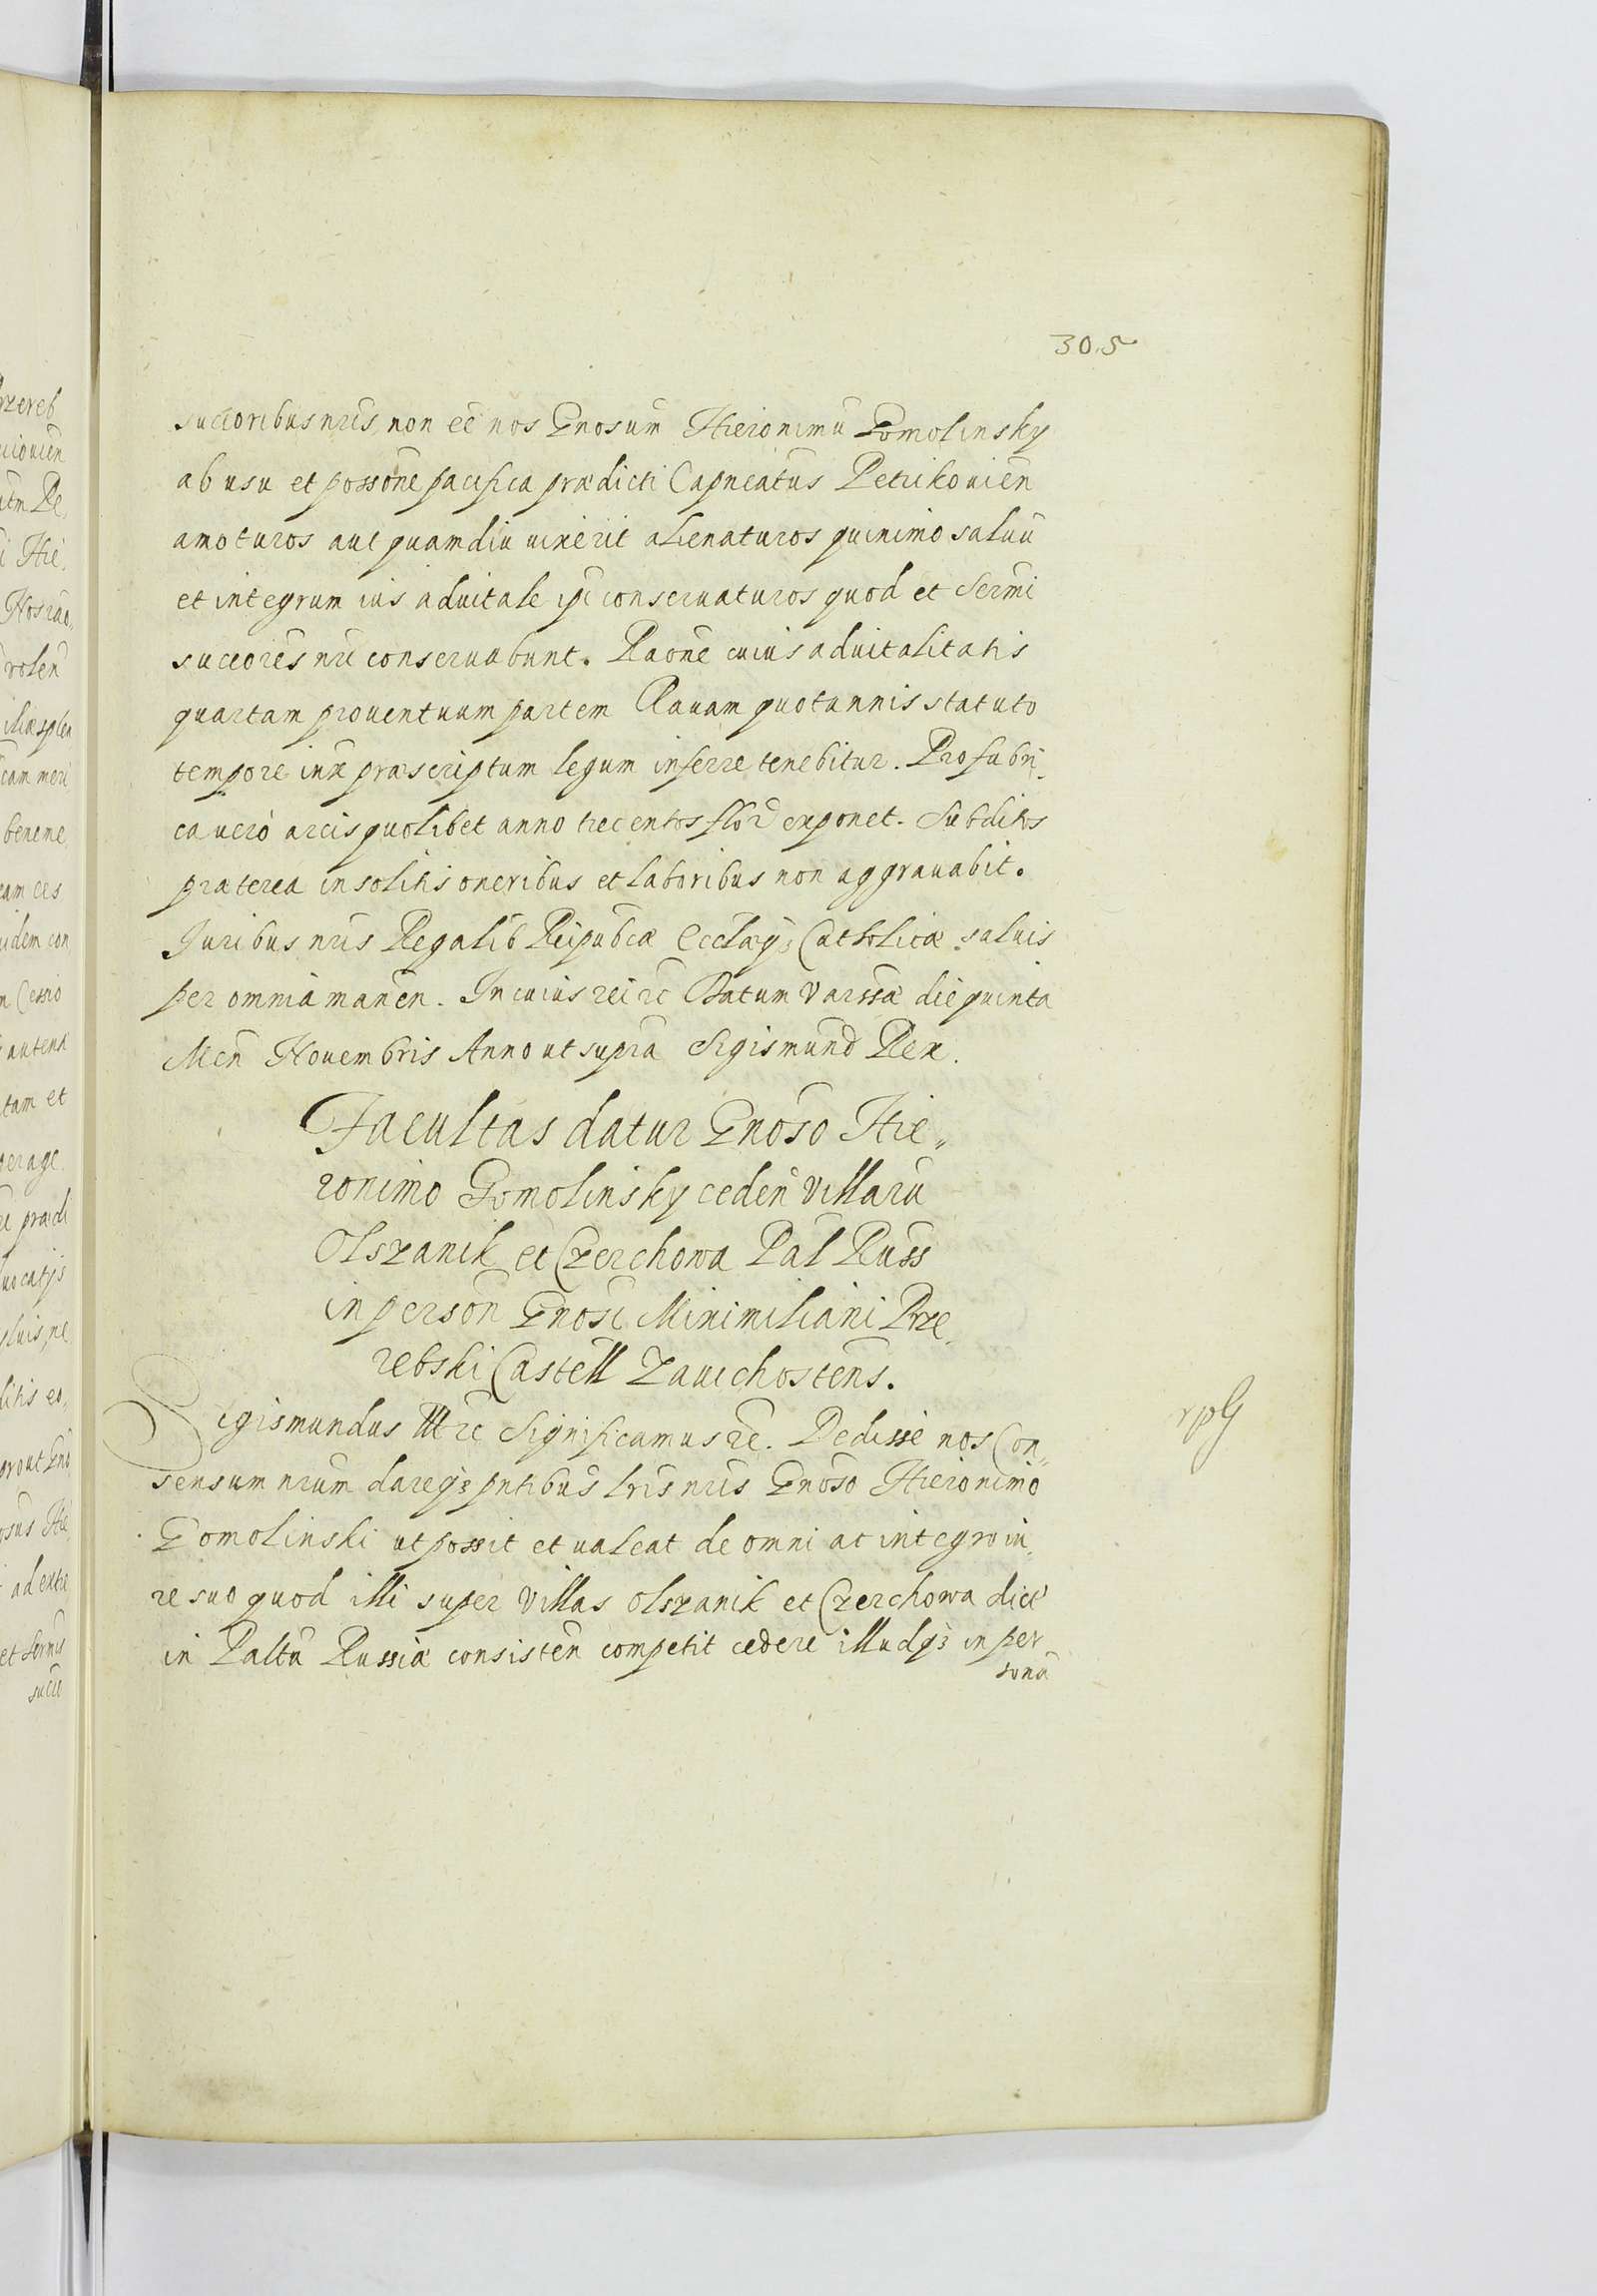 305
succoribus nris non eē nos Gnosum Hieronimū Gomolinsky
ab usu et possone pacifica prædicti Capneatus Petrikouien
amoturos aut quamdiu uixerit alienaturos quinimo saluū
et integrum ius aduitale ipi conseruaturos quod et Sermi
succores nri conseruabunt. Raone cuius aduitalitatis
quartam prouentuum partem Rauam quotannis statuto
tempore iux præscriptum legum inferre tenebitur. Pro fabri„
ca uero arcis quolibet anno trecentos flor exponet. Subditos
præterea insolitis oneribus et laboribus non aggrauabit.
Juribus nris Regalib Reipubcæ Ecclæq3 Catholicæ saluis
per omnia manen. In cuius rei rc Datum Varssæ die quinta
Men Nouembris Anno ut supra Sigismund Rex.
Facultas datur Gnoso Hie„
ronimo Gomolinsky ceden villarū
Olszanik et Czerchowa Pal Russ
in person Gnosi Miximiliani Prze„
rebski Castell Zauichostens.
Sigismundus III rc Significamus rc. Dedisse nos Con„
sensum nrum dareq3 pntibus lris nris Gnoso Hieronimo
Gomolinski ut possit et ualeat de omni ac integro iu„
re suo quod illi super villas Olszanik et Czerchowa dict
in Paltu Russiæ consisten competit cedere illudq3 in per„
sonā